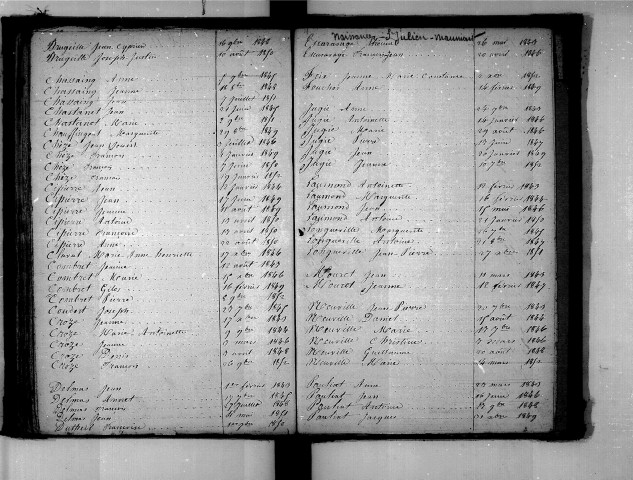 Bruguille Jean Cyprien 16 9bre 1848
Bruguille Joseph Justin 10 août 1850
Chassaing Anne 7 9bre 1845
Chassaing Jeanne 18 8bre 1848
Chassaing Jean 7 juillet 1851
Chastanet Jean 21 juin 1845
Chastanet Marie 2 9bre 1851
Chauffingeat Marguerite 29 8bre 1849
Chèze Jean Louis 3 juillet 1846
Chèze François 4 janvier 1849
Chèze François 7 juin 1850
Chèze François 19 janvier 1852
Cipierre Jean 13 janvier 1846
Cipierre Jean 17 juin 1849
Cipierre Jeanne 11 août 1849
Cipierre Antoine 13 avril 1850
Cipierre Françoise 13 avril 1850
Cipierre Anne 20 août 1850
Claval Marie Anne Henriette 17 xbre 1846
Combret Jeanne 12 août 1843
Combret Marie 15 xbre 1845
Combret Giles 16 février 1849
Combret Pierre 8 9bre 1852
Coudert Joseph 23 7bre 1845
Croze Jeanne 17 xbre 1843
Croze Marie Antoinette 7 9bre 1844
Croze Jeanne 2 mars 1846
Croze Denis 3 avril 1848
Croze François 26 9bre 1851
Delmas Jean 1er février 1843
Delmas Annet 17 7bre 1845
Delmas François juillet 1848
Delmas Jean 8 mai 1851
Françoise 1850
Naissances St Julien-Maumont
Escaravage 26 mai 1843
Escaravage 20 avril 1846
Marie Constance 3 xbre 1852
14 février 1849
Jugie Anne 24 9bre 1843
Jugie Antoinette 14 janvier 1846
Jugie Marie 29 août 1846
Jugie Pierre 13 juin 1847
Jugie Jean 20 janvier 1849
Jugie Jeanne 10 7bre 1852
Laumond Antoinette 18 février 1843
Laumond Marguerite 16 février 1844
Laumond Jean 15 mai 1848
Laumond Antoine 21 janvier 1850
Longueville Marguerite 16 7bre 1845
Longueville Antoine 21 8bre 1847
Longueville Jean Pierre 27 xbre 1850
Mouret Jean 11 mars 1843
Mouret Jeanne 12 février 1847
Neuville Jean Pierre 20 7bre 1843
Neuville Daniel 15 août 1844
Neuville Marie 13 7bre 1846
Neuville Christine 3 mars 1846
Neuville Guillaume 20 août 1848
Neuville Marie 24 mars 1852
Pauliat Anne 23 mars 1843
Pauliat Jean 16 juin 1846
Pauliat Antoine 15 9bre 1848
Pauliat Jacques 20 xbre 1849